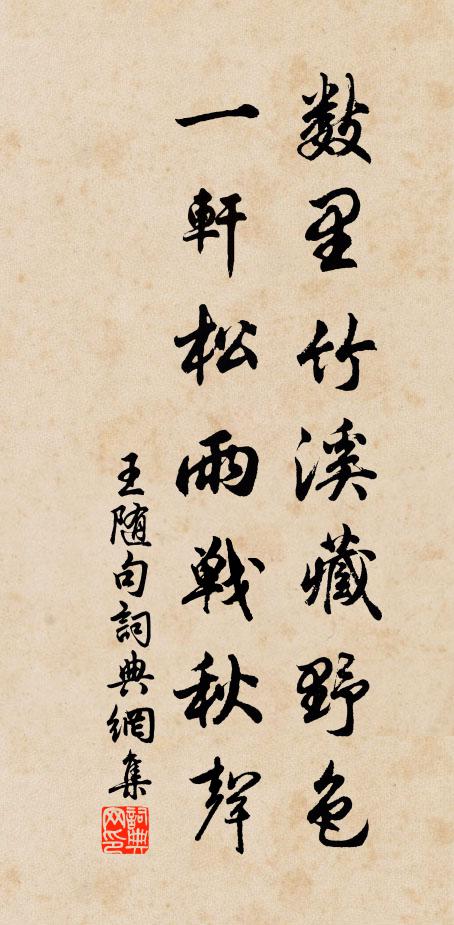 数里竹溪藏野色
一軒松雨戰秋聲
王随句詞典網集
詞典
网印